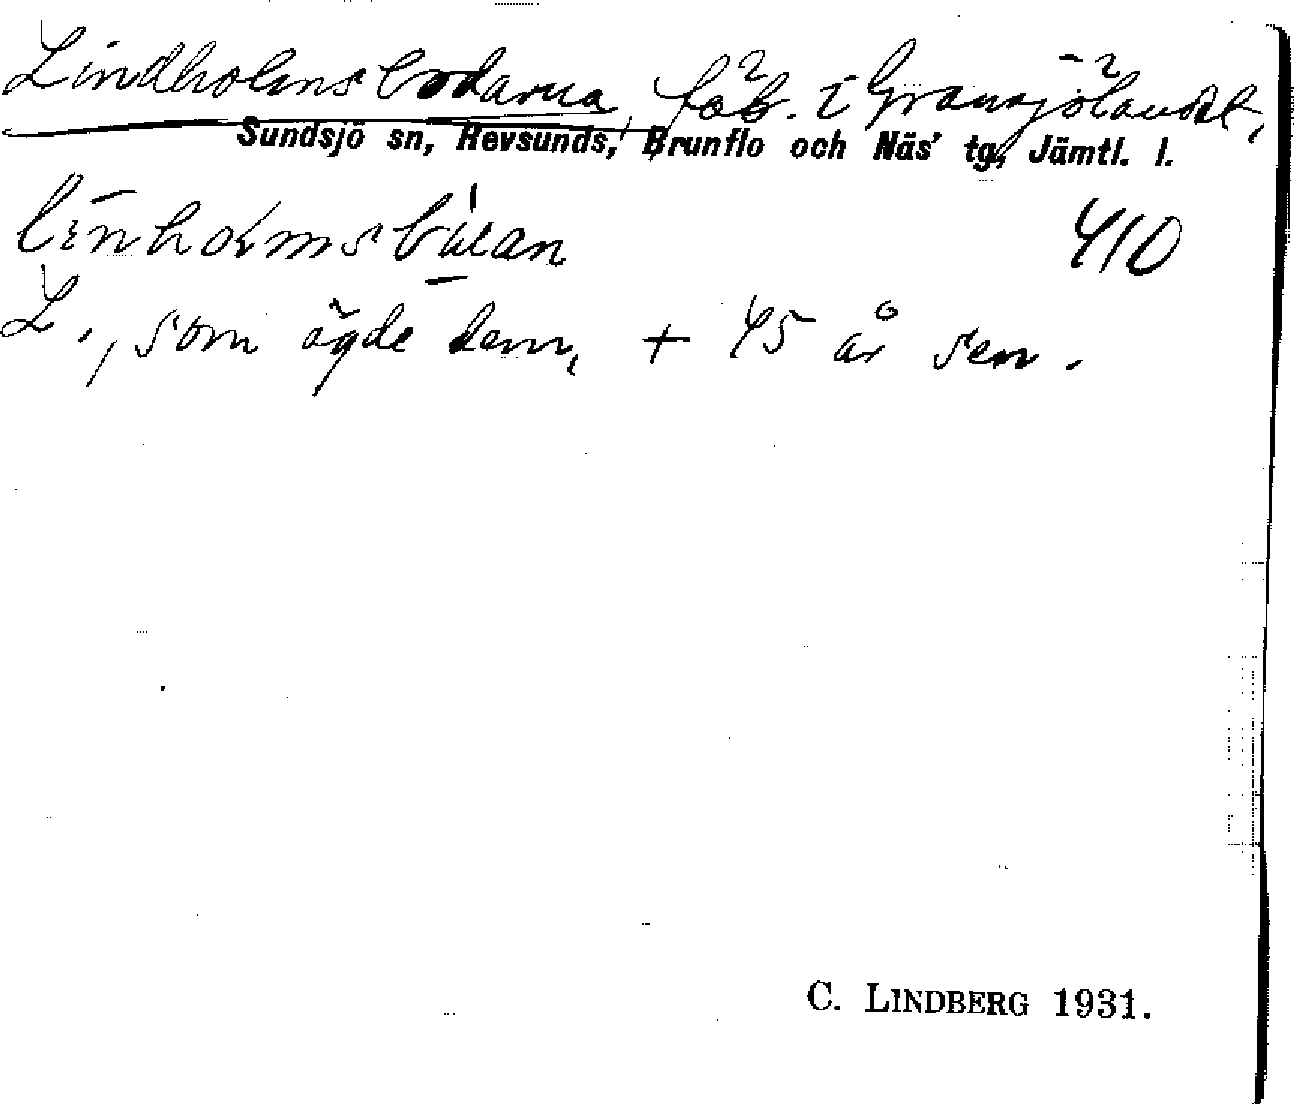 Lindholmsbodarna, fäb. i Gransjölandet,
Sundsjö sn, Revsunds, Brunflo och Näs' tg, Jämtl. l.
410
L., som ägde dem, + 45 år sen.
C. LINDBERG 1931.